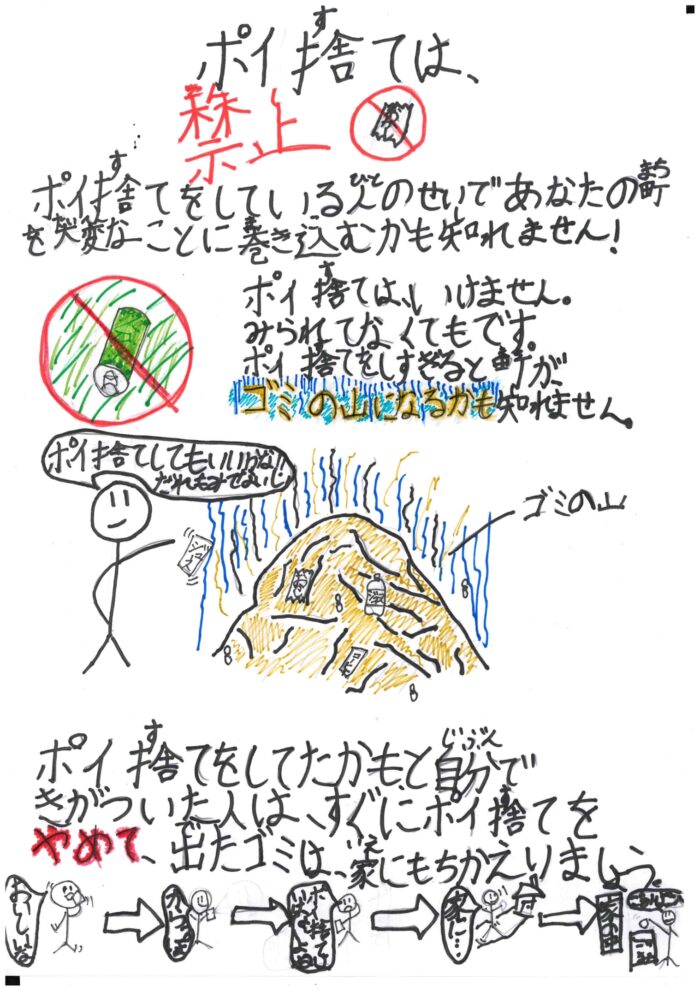 ポイ捨ては、
す
禁止
ポイ捨てをしている人のせいであなたの町
す
ひと
まち
を大変なことに巻き込むかも知れません!
ポイ捨ては、いけません。
す
みられてなくてもです。
ポイ捨てをしすぎると町が、
す
ゴミの山になるかも知れません。
ポイ捨てしてもいいかな!
だれもみてないし!
ゴミの山
ポイ捨てをしてたかもと自分で
す
じぶん
きがついた人は、すぐにポイ捨てを
す
やめて、出たゴミは、家にもちかえりましょう。
いえ
おいしいな
家に…